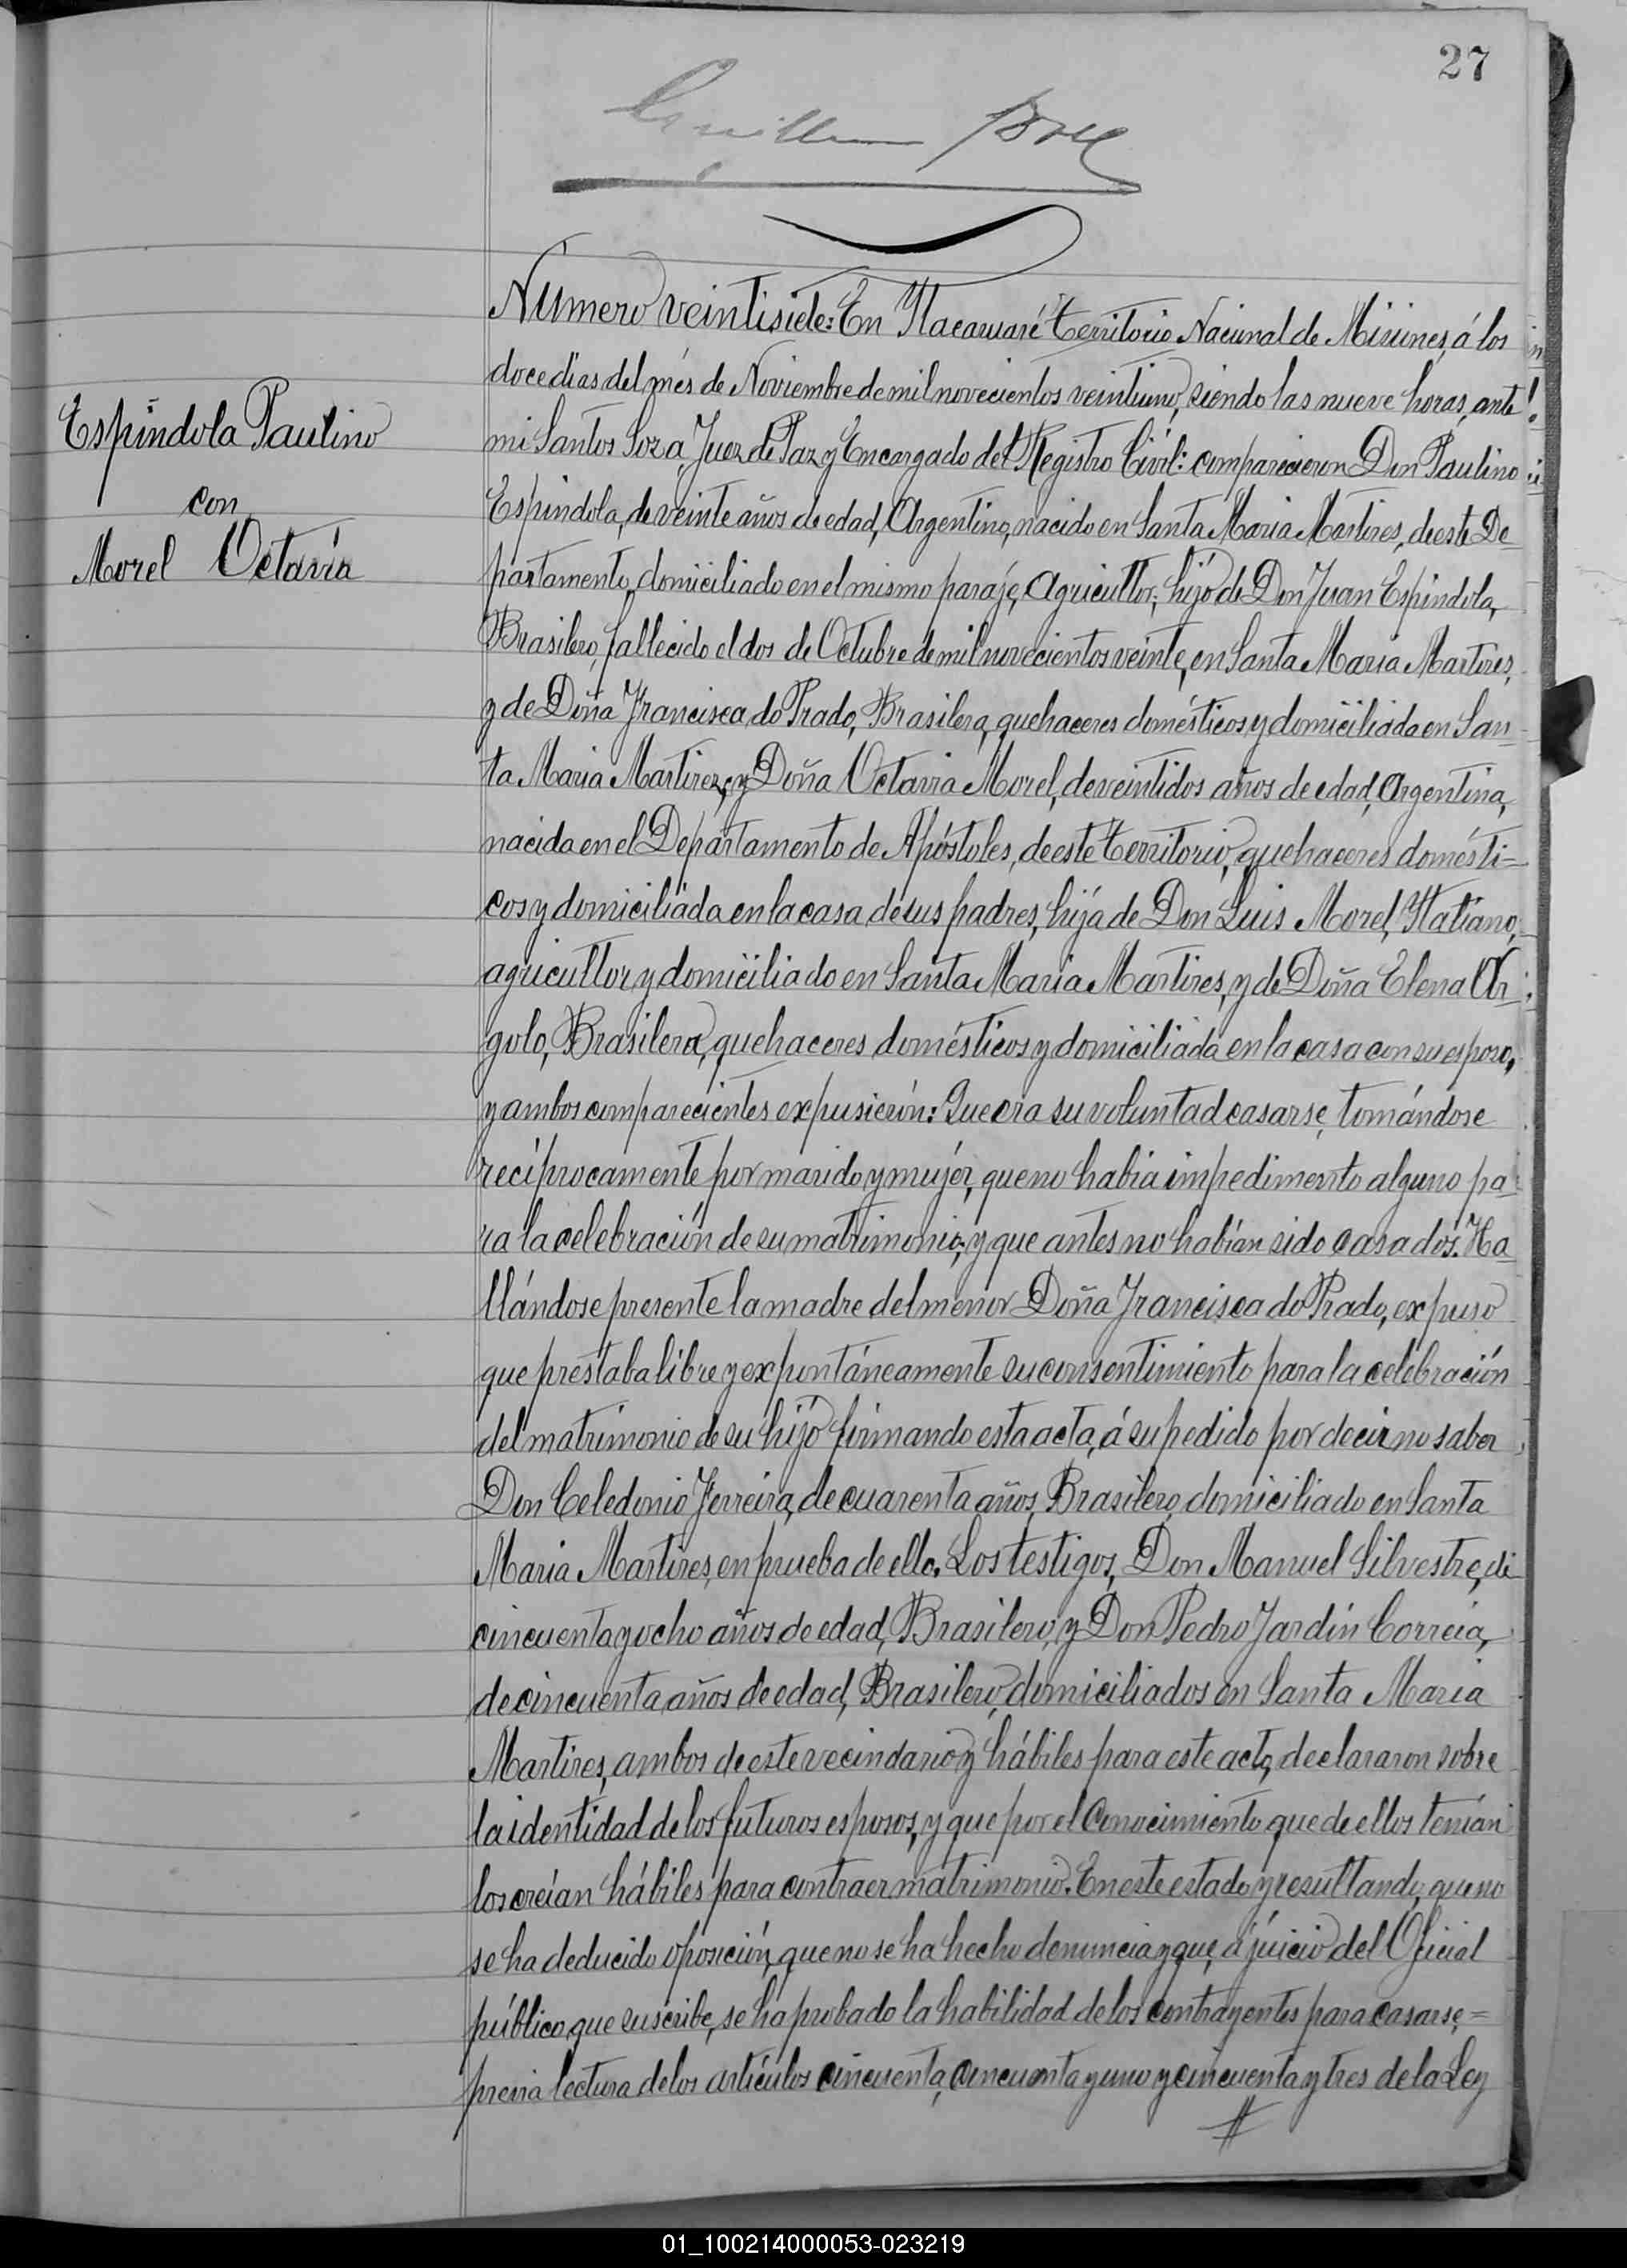 27
Espíndola Paulino
con
Morel Octavia
Número veintisiete: En Itacaruaré territorio Nacional de Misiones, á los
doce días del més de Noviembre de mil novecientos veintiuno, siendo las nueve horas, ante
mi Santos Soza, Juez de Paz y Encargado del Registro Civil: comparecieron Don Paulino
Espindola, de veinte años de edad, Argentino, nacido en Santa Maria Martires, de este De-
partamento, domiciliado en el mismo paraje, Agricultor; hijo de Don Juan Espindola,
Brasilero, fallecido el dos de Octubre de mil novecientos veinte, en Santa Maria Martires,
y de Doña Francisca do Prado, Brasilera, quehaceres domésticos y domiciliada en San-
ta Maria Martirez, y Doña Octavia Morel, de veintidos años de edad, Argentina,
nacida en el Departamento de Apóstoles, de este territorio, quehaceres domésti-
cos y domiciliada en la casa de sus padres, hija de Don Luis Morel, Italiano,
agricultor y domiciliado en Santa Maria Martires, y de Doña Elena Ar-
golo, Brasilera, quehaceres domésticos y domiciliada en la casa con su esposo,
y ambos comparecientes expusierón: Que era su voluntad casarse, tomándose
recíprocamente por marido y mujer, que no habia impedimento alguno pa-
ra la celebración de su matrimonio, y que antes no habían sido casados. Ha-
llándose presente la madre del menor Doña Francisca do Prado, expuso
que prestaba libre y expontáneamente su consentimiento para la celebración
del matrimonio de su hijo firmando esta acta, á su pedido por decir no saber
Don Celedonio Ferreira, de cuarenta años, Brasilero, domiciliado en Santa
Maria Martires, en prueba de ello. Los testigos, Don Manuel Silvestre, de
cincuenta y ocho años de edad, Brasilero, y Don Pedro Jardin Correia,
de cincuenta años de edad, Brasilero, domiciliados en Santa Maria
Martires, ambos de este vecindario y hábiles para este acto, declararon sobre
la identidad de los futuros esposos, y que por el Conocimiento que de ellos tenían
los creían hábiles para contraer matrimonio. En este estado y resultando, que no
se ha deducido oposición, que no se ha hecho denuncia y que, a juicio del Oficial
público que suscribe, se ha probado la habilidad de los contrayentes para casarse, =
previa lectura de los artículos cincuenta, cincuenta y uno y cincuenta y tres de la Ley
01_100214000053-023219